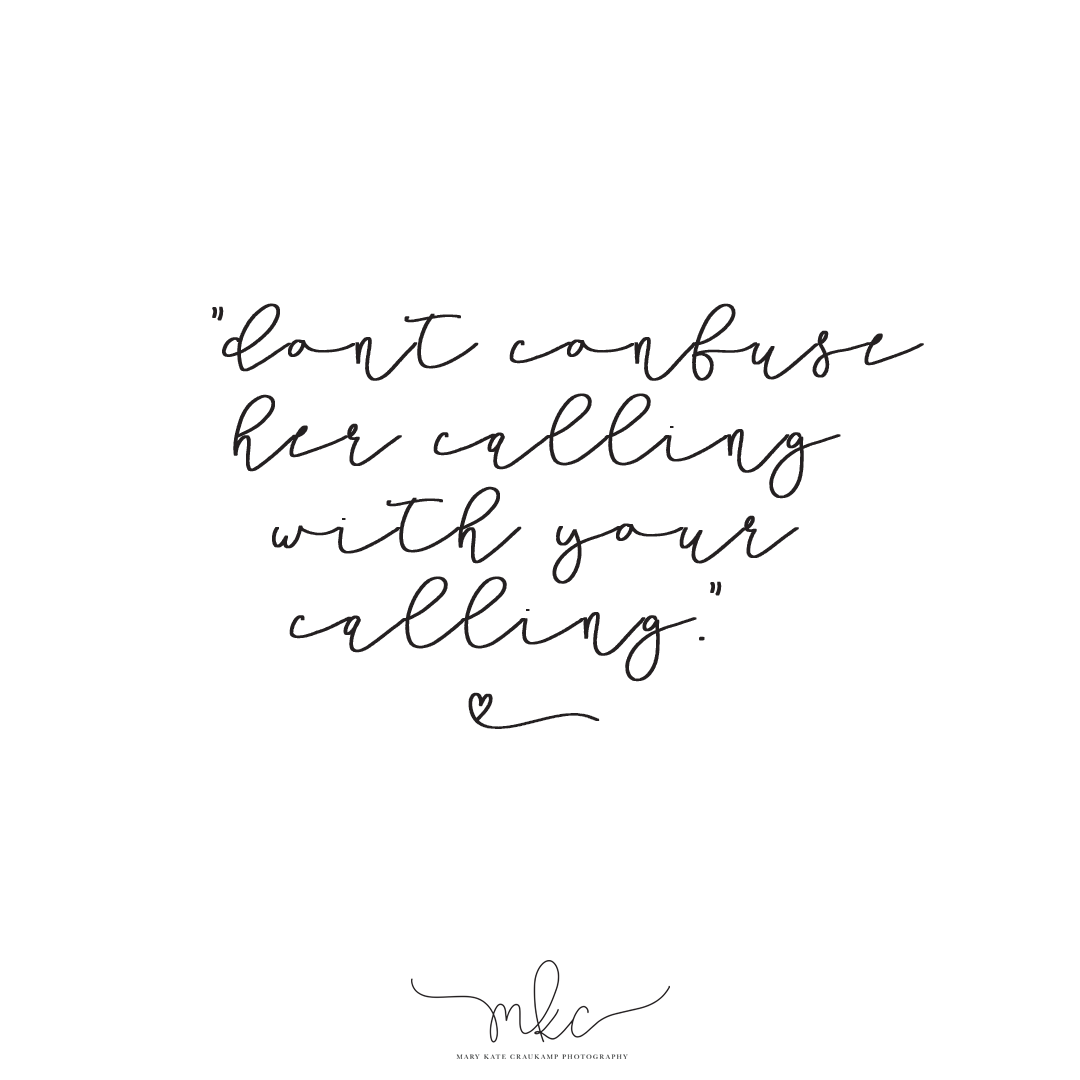 "dont confuse
her calling
with your
calling."
mkc
MARY KATE CRAUKAMP PHOTOGRAPHY